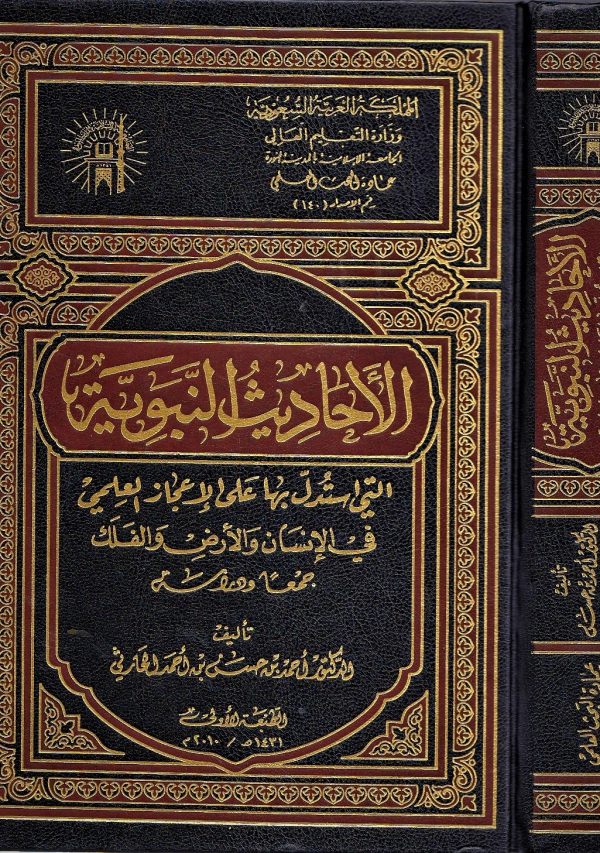 المملكة العربية السعودية
وزارة التعليم العالي
الجامعة الإسلامية بالمدينة المنورة
عمادة البحث العلمي
رقم الإصدار (١٤٠)
الأحاديث النبوية
التي استدل بها على الإعجاز العلمي
في الإنسان والأرض والفلك
جمعا ودراسة
تأليف
الدكتور أحمد بن حسن بن أحمد الحارثي
الطبعة الأولى
١٤٣١ هـ / ٢٠١٠ م
الأحاديث النبوية
تأليف
الدكتور أحمد بن حسن
عمادة البحث العلمي